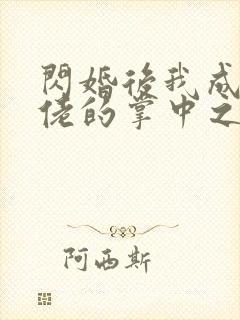 閃婚後我成
佬的掌中之
阿西斯